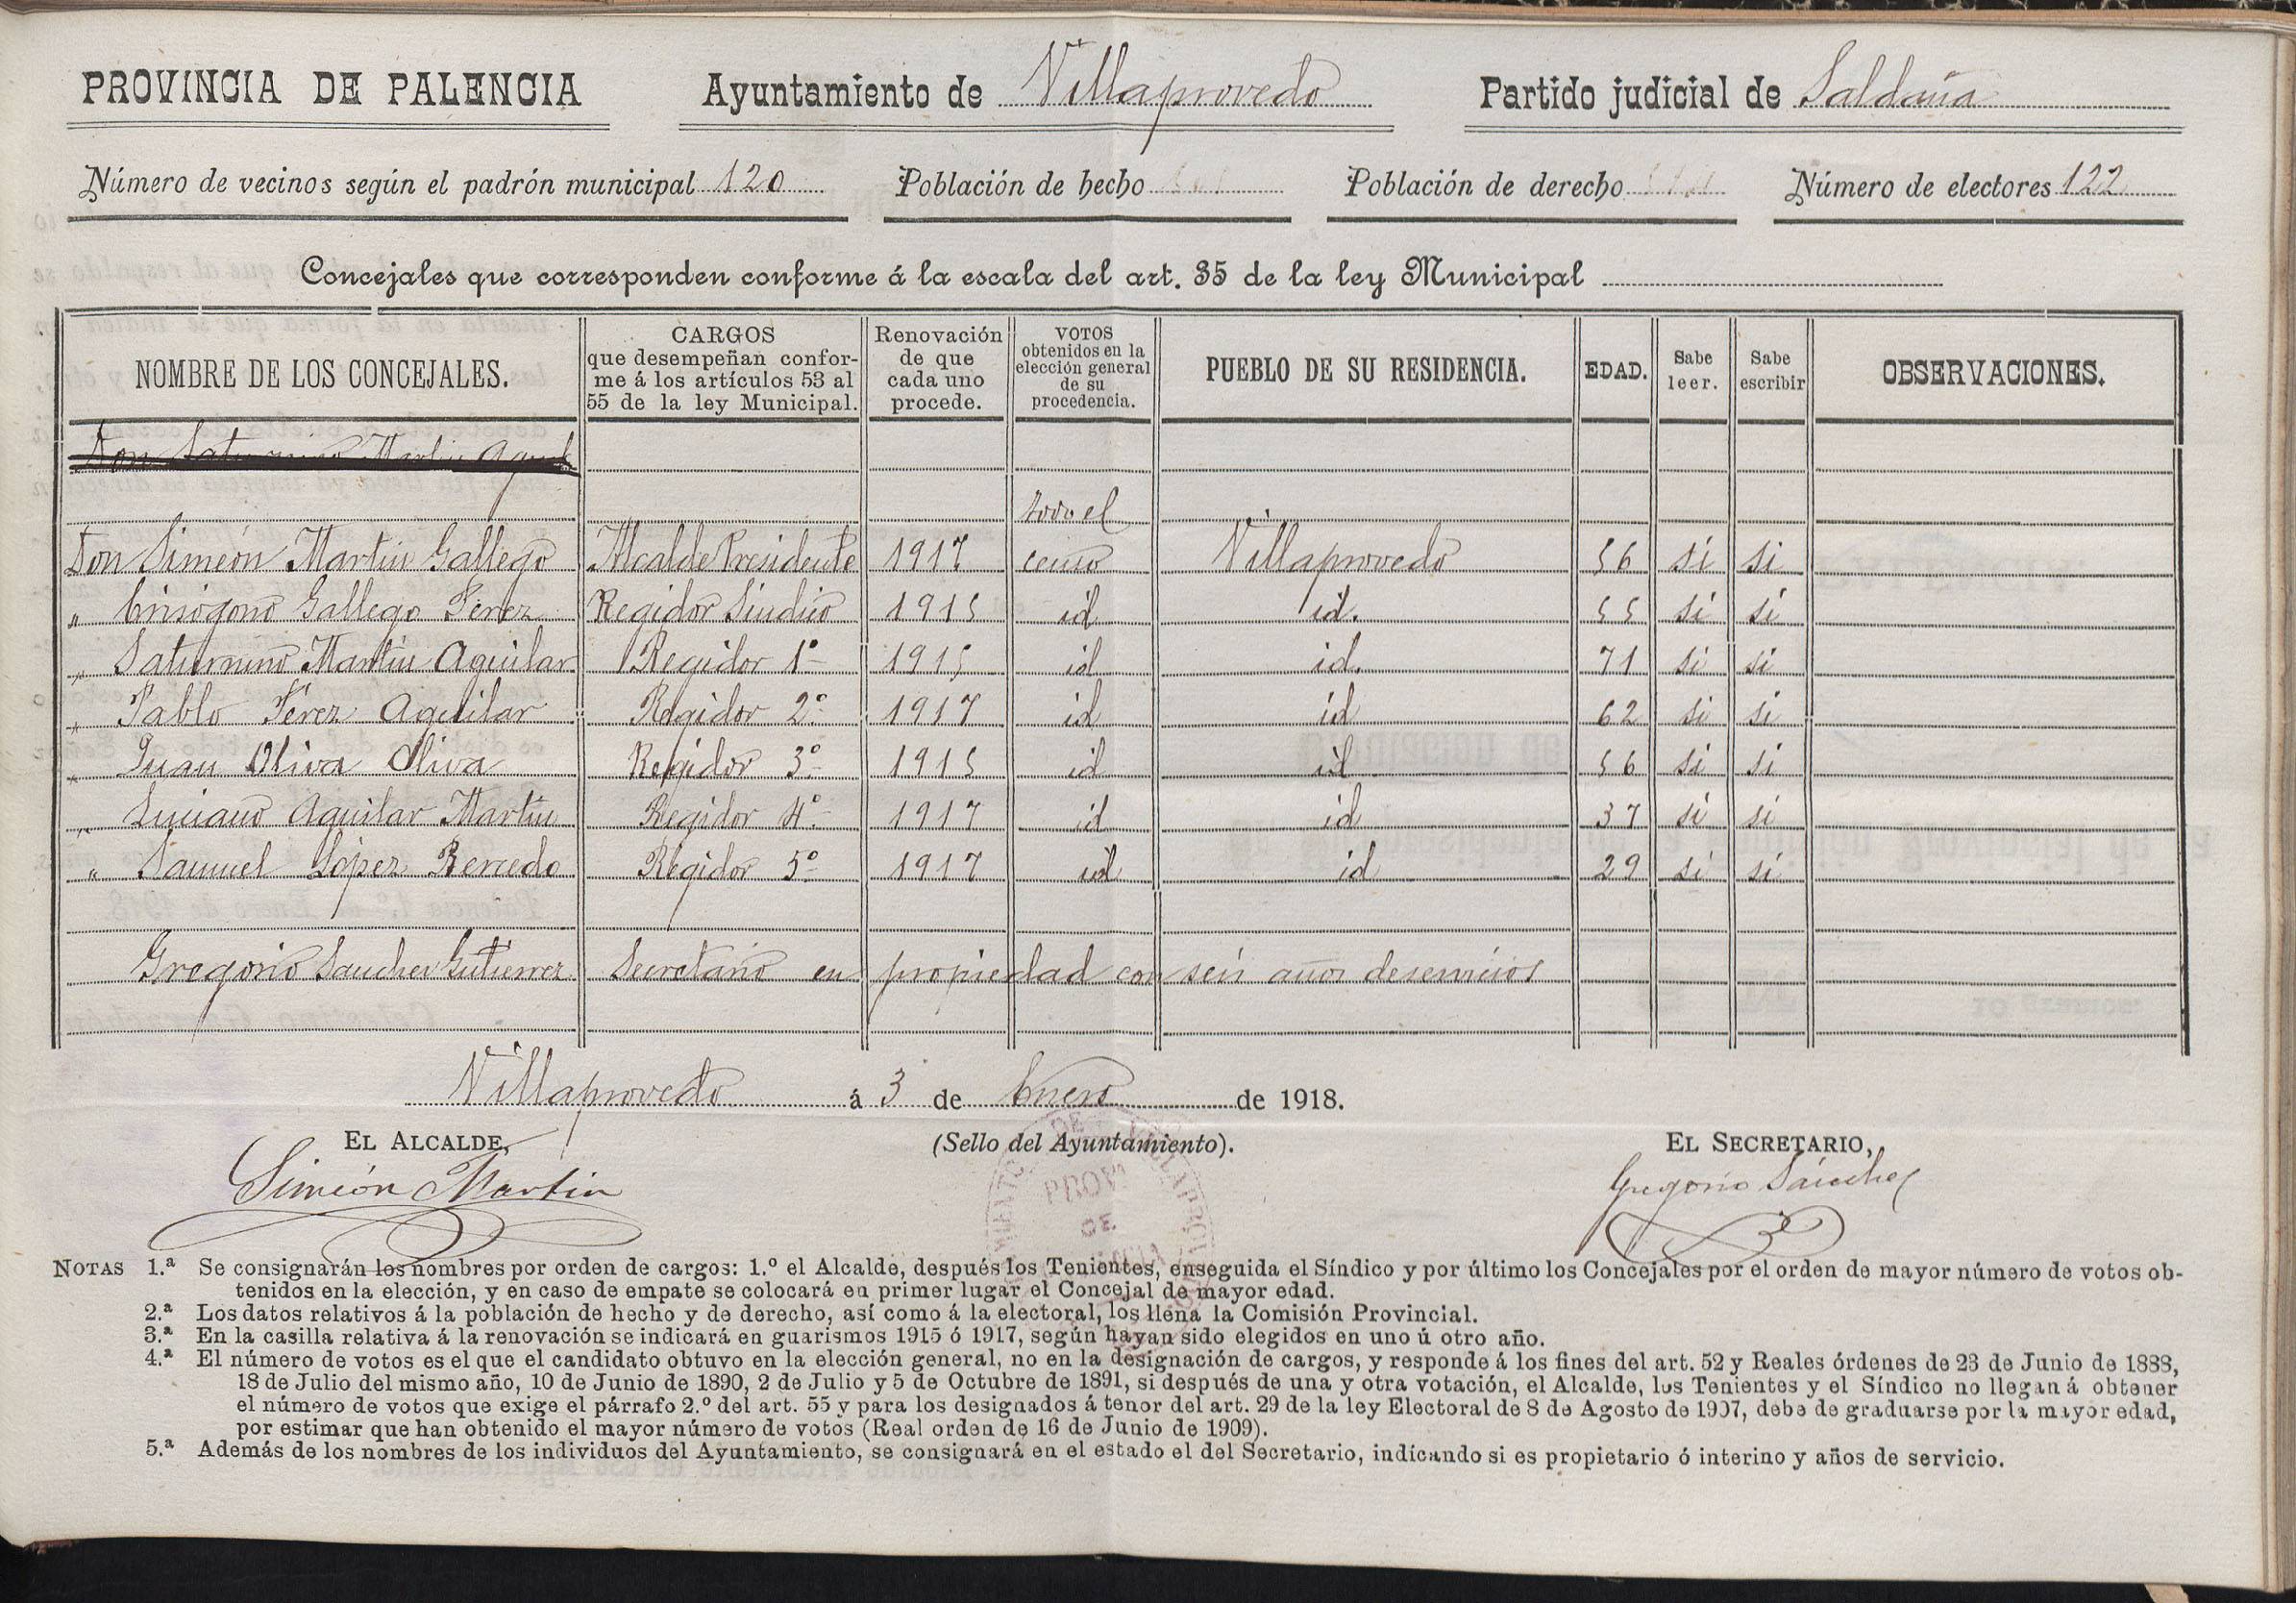 PROVINCIA DE PALENCIA Ayuntamiento de Villaprovedo Partido judicial de Saldaña
Número de vecinos según el padrón municipal 120 Población de hecho Población de derecho Número de electores 122
Concejales que corresponden conforme á la escala del art. 35 de la ley Municipal
NOMBRE DE LOS CONCEJALES. CARGOS que desempeñan conforme á los artículos 53 al 55 de la ley Municipal. Renovación de que cada uno procede. VOTOS obtenidos en la elección general de su procedencia. PUEBLO DE SU RESIDENCIA. EDAD. Sabe leer. Sabe escribir OBSERVACIONES.
Don Saturnino Martin Aguil
todo el
Don Simeón Martin Gallego Alcalde Presidente 1917 censo Villaprovedo 56 si si
" Crisógono Gallego Pérez Regidor Sindico 1915 id id. 55 si si
" Saturnino Martin Aguilar Regidor 1º 1915 id id. 71 si si
" Pablo Pérez Aguilar Regidor 2º 1917 id id 62 si si
" Juan Oliva Oliva Regidor 3º 1915 id id 56 si si
" Luciano Aguilar Martin Regidor 4º 1917 id id 37 si si
" Samuel López Bercedo Regidor 5º 1917 id id 29 si si
Gregorio Sanchez Gutierrez Secretario en propiedad con seis años de servicios
Villaprovedo á 3 de Enero de 1918.
EL ALCALDE, (Sello del Ayuntamiento). EL SECRETARIO,
Simeón Martin Gregorio Sánchez
PROV
DE
NOTAS 1.ª Se consignarán los nombres por orden de cargos: 1.º el Alcalde, después los Tenientes, enseguida el Síndico y por último los Concejales por el orden de mayor número de votos ob-
tenidos en la elección, y en caso de empate se colocará en primer lugar el Concejal de mayor edad.
2.ª Los datos relativos á la población de hecho y de derecho, así como á la electoral, los llena la Comisión Provincial.
3.ª En la casilla relativa á la renovación se indicará en guarismos 1915 ó 1917, según hayan sido elegidos en uno ú otro año.
4.ª El número de votos es el que el candidato obtuvo en la elección general, no en la designación de cargos, y responde á los fines del art. 52 y Reales órdenes de 23 de Junio de 1888,
18 de Julio del mismo año, 10 de Junio de 1890, 2 de Julio y 5 de Octubre de 1891, si después de una y otra votación, el Alcalde, los Tenientes y el Síndico no llegan á obtener
el número de votos que exige el párrafo 2.º del art. 55 y para los designados á tenor del art. 29 de la ley Electoral de 8 de Agosto de 1907, debe de graduarse por la mayor edad,
por estimar que han obtenido el mayor número de votos (Real orden de 16 de Junio de 1909).
5.ª Además de los nombres de los individuos del Ayuntamiento, se consignará en el estado el del Secretario, indicando si es propietario ó interino y años de servicio.